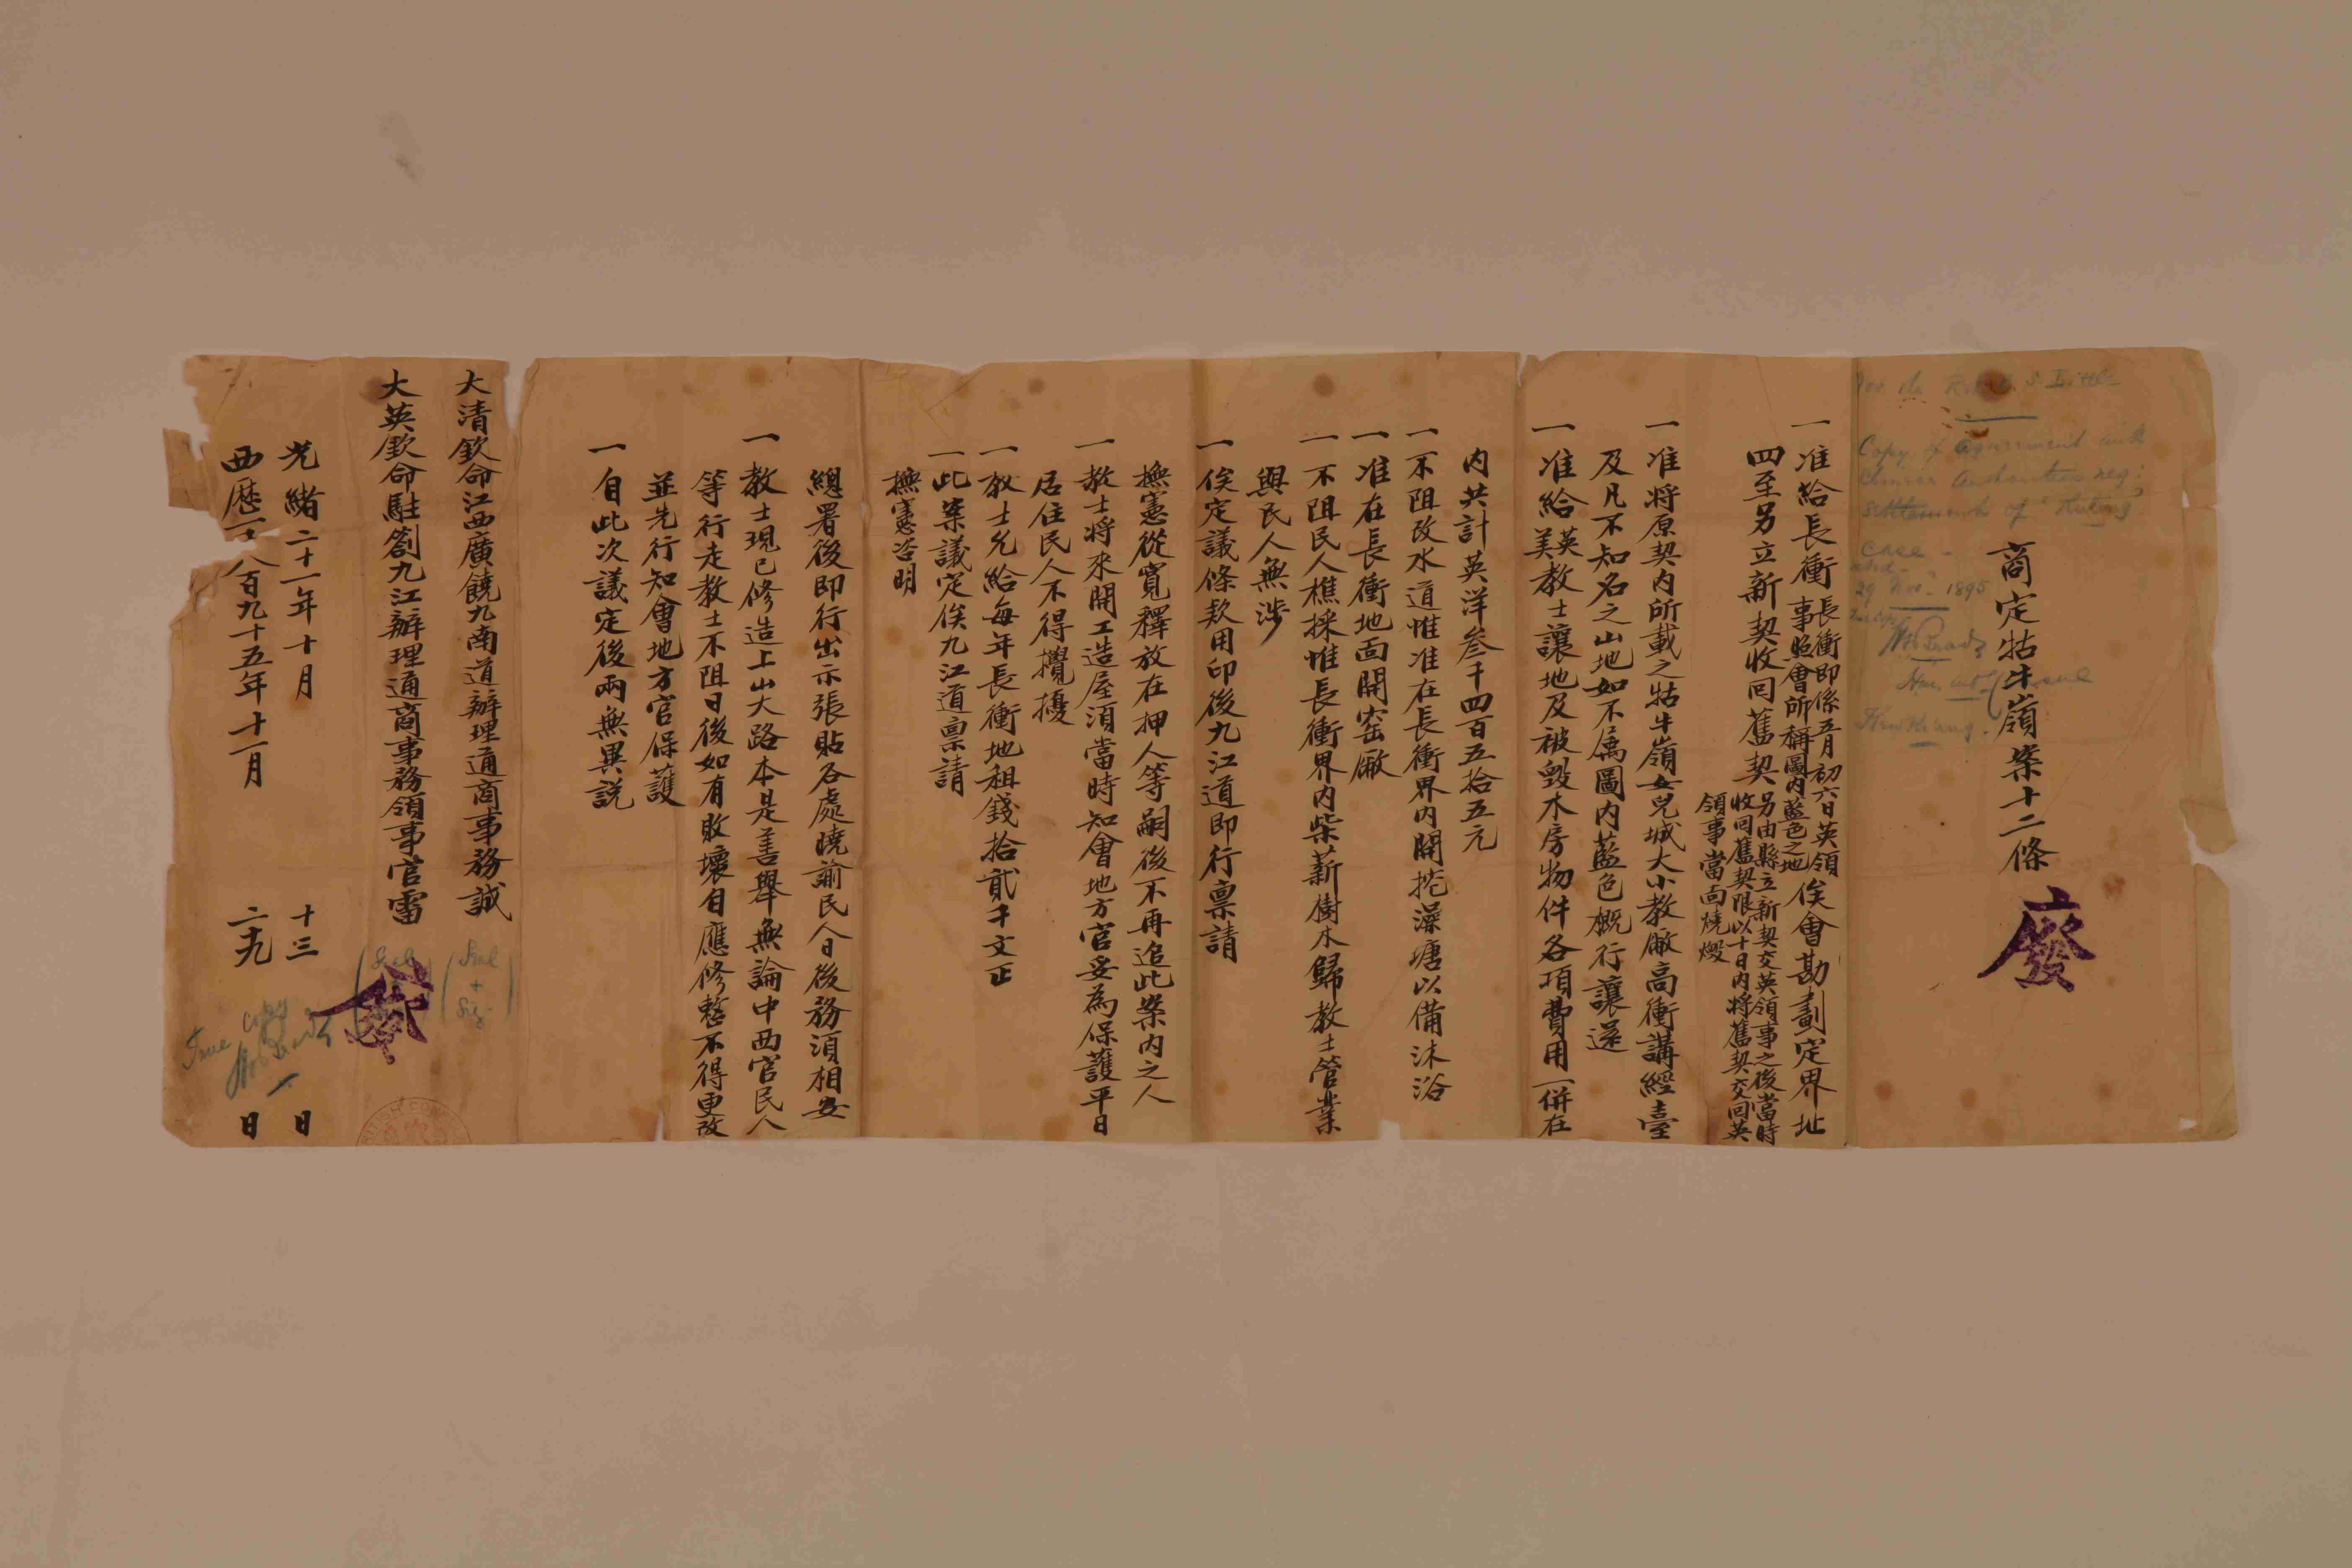 商定牯牛嶺案十二條
廢
Copy of agreement with
Chinese Authorities reg:
settlement of "Kuling"
case -
29 Nov: 1895
Kiukiang.
一准給長衝長衝即係五月初六日英領事照會所稱圖內藍色之地俟會勘劃定界址
四至另立新契收回舊契另由縣立新契交英領事之後當時收回舊契限以十日內將舊契交回英領事當面燒燬
一准將原契內所載之牯牛嶺女兒城大小教廠高衝講經臺
及凡不知名之山地如不屬圖內藍色概行讓還
一准給英美教士讓地及被毀木房物件各項費用一併在
內共計英洋叁千四百五拾五元
一不阻改水道惟准在長衝界內開挖澡塘以備沐浴
一准在長衝地面開窑廠
一不阻民人樵採惟長衝界內柴薪樹木歸教士管業
與民人無涉
一俟定議條欵用印後九江道即行禀請
撫憲從寬釋放在押人等嗣後不再追此案內之人
一教士將來開工造屋須當時知會地方官妥為保護平日
居住民人不得攪擾
一教士允給每年長衝地租錢拾貳千文正
一此案議定俟九江道禀請
撫憲咨明
總署後即行出示張貼各處曉諭民人日後務須相安
一教士現已修造上山大路本是善舉無論中西官民人
等行走教士不阻日後如有敗壞自應修整不得更改
並先行知會地方官保護
一自此次議定後兩無異說
大清欽命江西廣饒九南道辦理通商事務誠
Seal
+
Sig.
大英欽命駐劄九江辦理通商事務領事官雷
Seal
廢
光緒二十一年十月 十三 日
西歷一千八百九十五年十一月 二十九 日
True copy